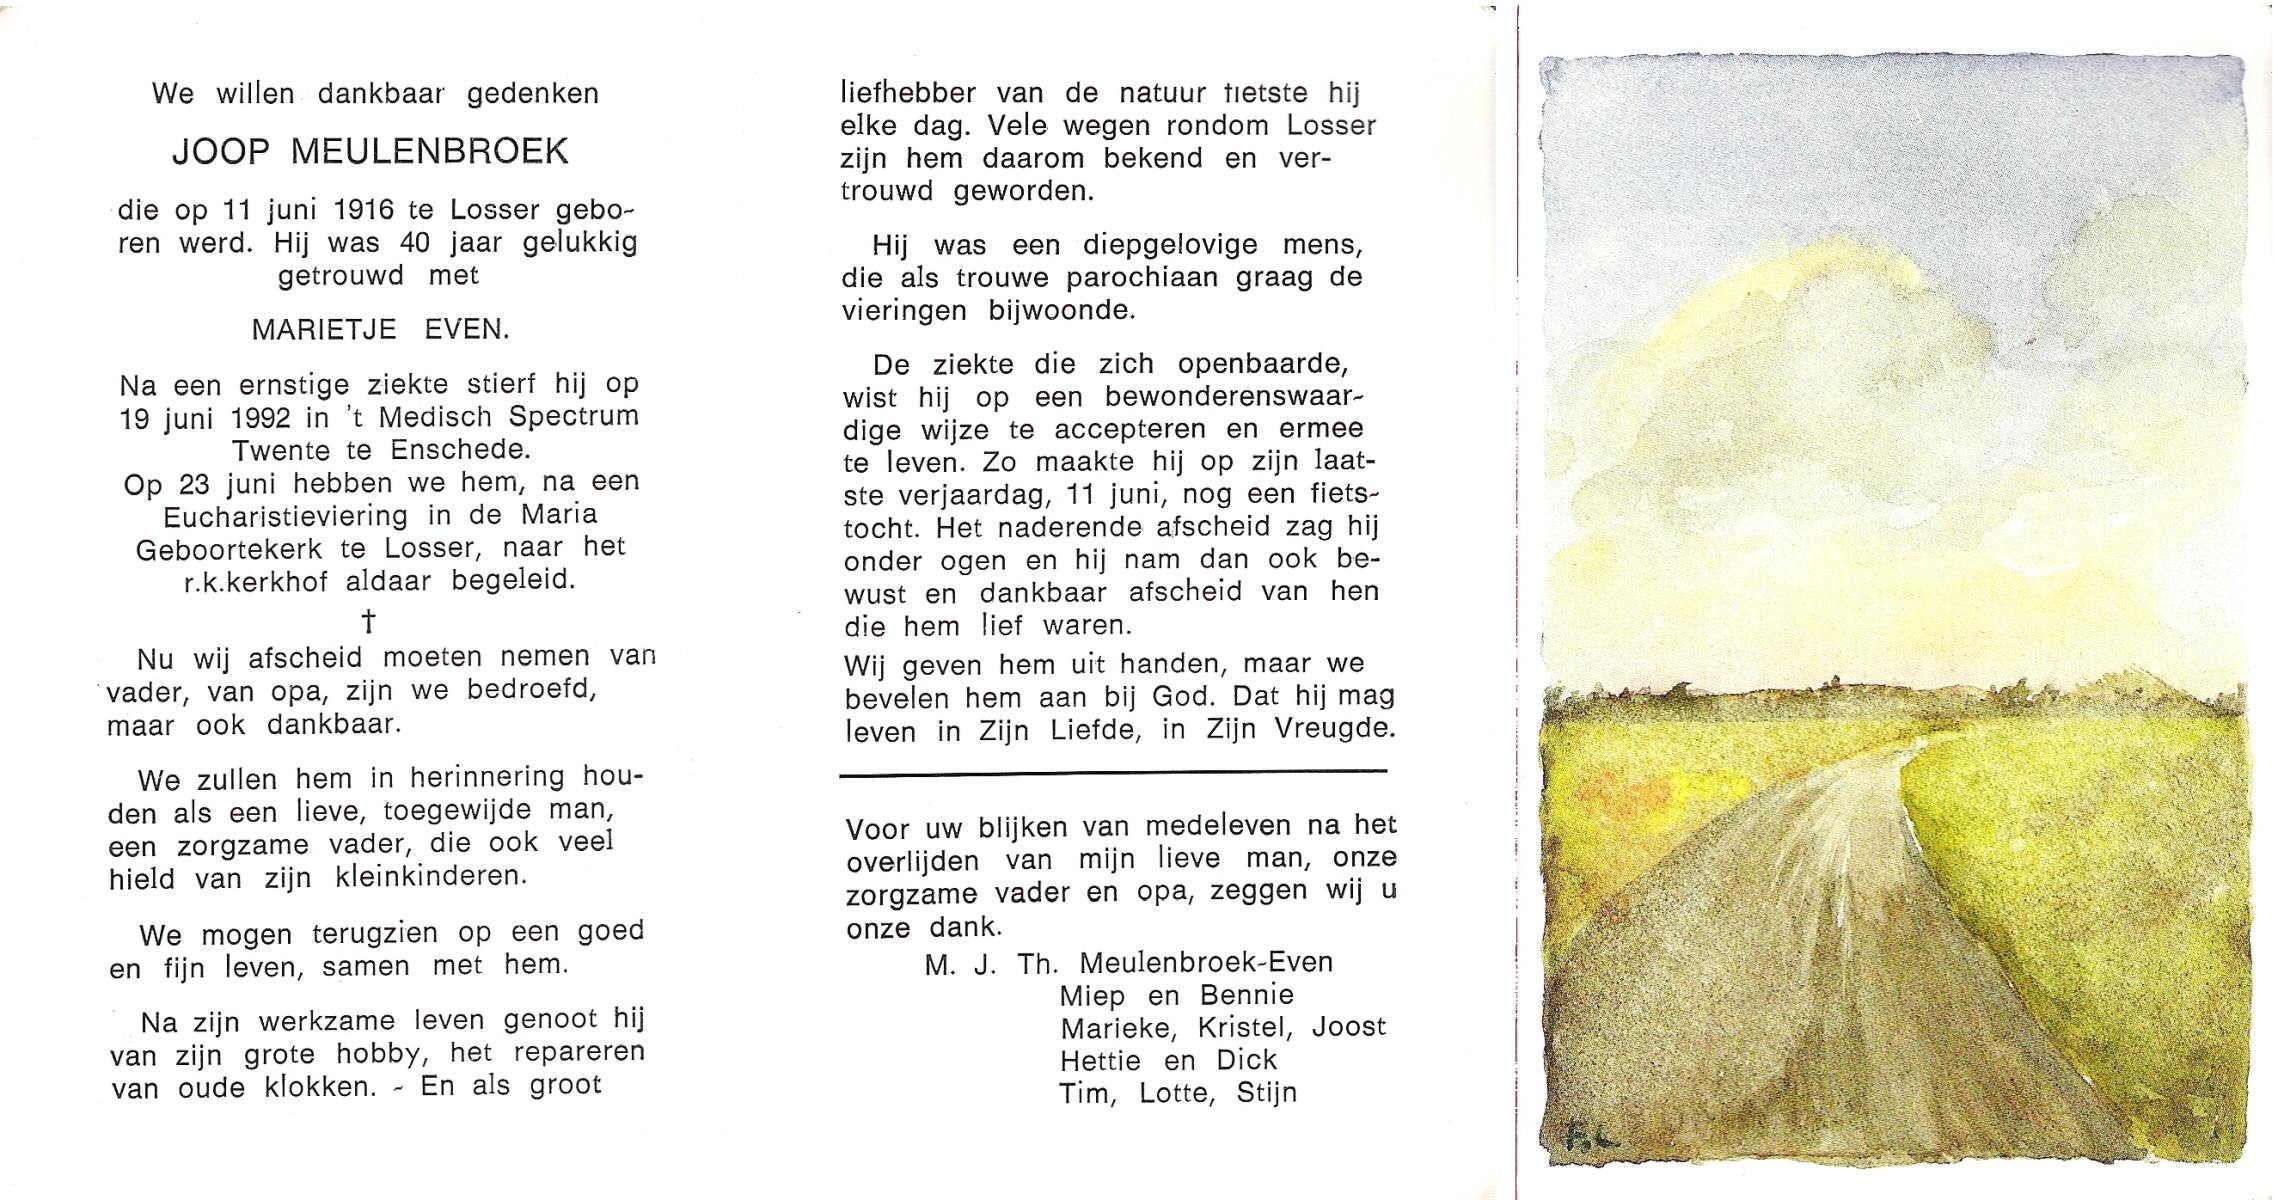 We willen dankbaar gedenken
JOOP MEULENBROEK
die op 11 juni 1916 te Losser gebo-
ren werd. Hij was 40 jaar gelukkig
getrouwd met
MARIETJE EVEN.
Na een ernstige ziekte stierf hij op
19 juni 1992 in 't Medisch Spectrum
Twente te Enschede.
Op 23 juni hebben we hem, na een
Eucharistieviering in de Maria
Geboortekerk te Losser, naar het
r.k.kerkhof aldaar begeleid.
†
Nu wij afscheid moeten nemen van
vader, van opa, zijn we bedroefd,
maar ook dankbaar.
We zullen hem in herinnering hou-
den als een lieve, toegewijde man,
een zorgzame vader, die ook veel
hield van zijn kleinkinderen.
We mogen terugzien op een goed
en fijn leven, samen met hem.
Na zijn werkzame leven genoot hij
van zijn grote hobby, het repareren
van oude klokken. - En als groot
liefhebber van de natuur fietste hij
elke dag. Vele wegen rondom Losser
zijn hem daarom bekend en ver-
trouwd geworden.
Hij was een diepgelovige mens,
die als trouwe parochiaan graag de
vieringen bijwoonde.
De ziekte die zich openbaarde,
wist hij op een bewonderenswaar-
dige wijze te accepteren en ermee
te leven. Zo maakte hij op zijn laat-
ste verjaardag, 11 juni, nog een fiets-
tocht. Het naderende afscheid zag hij
onder ogen en hij nam dan ook be-
wust en dankbaar afscheid van hen
die hem lief waren.
Wij geven hem uit handen, maar we
bevelen hem aan bij God. Dat hij mag
leven in Zijn Liefde, in Zijn Vreugde.
Voor uw blijken van medeleven na het
overlijden van mijn lieve man, onze
zorgzame vader en opa, zeggen wij u
onze dank.
M. J. Th. Meulenbroek-Even
Miep en Bennie
Marieke, Kristel, Joost
Hettie en Dick
Tim, Lotte, Stijn